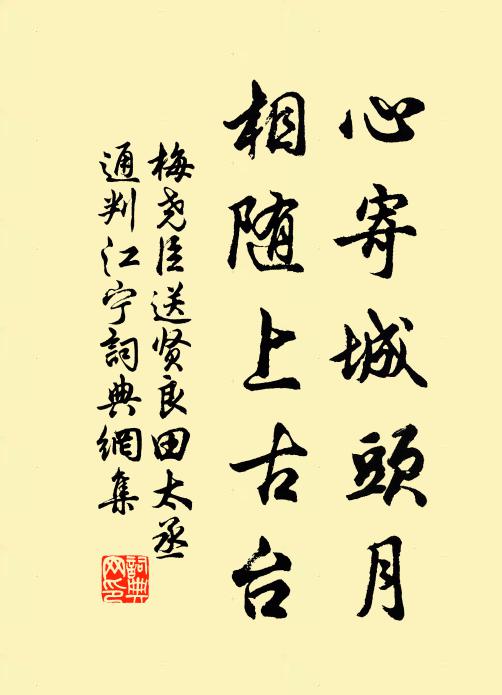 心寄城頭月
相随上古台
梅尧臣送贤良田太丞
通判江宁詞典網集
詞典
网印